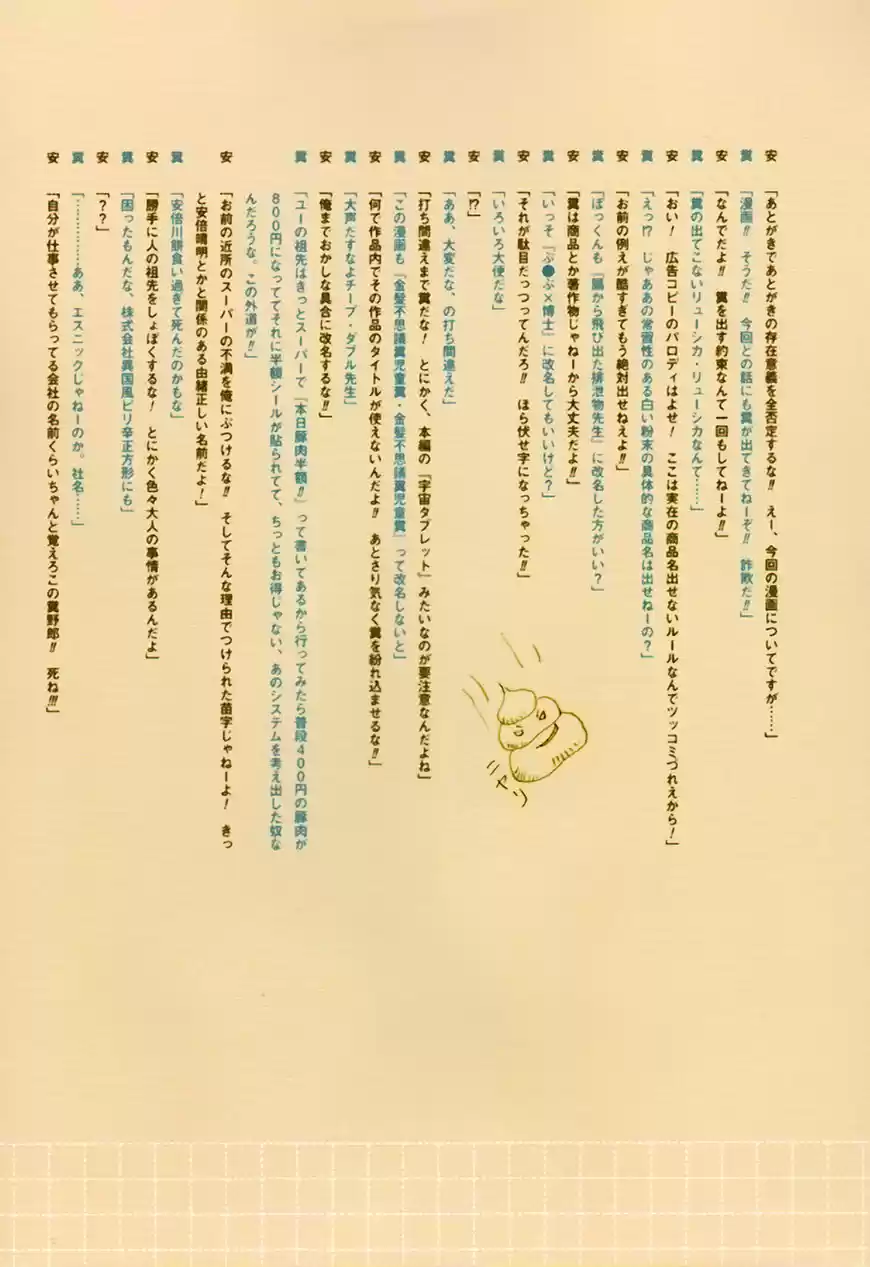 安「あとがきであとがきの存在意義を全否定するな!! えー、今回の漫画についてですが……」
糞「漫画!! そうだ!! 今回との話にも糞が出てきてねーぞ!! 詐欺だ!!」
安「なんでだよ!! 糞を出す約束なんて一回もしてねーよ!!」
糞「糞の出てこないリューシカ・リューシカなんて……」
安「おい! 広告コピーのパロディはよせ! ここは実在の商品名出せないルールなんでツッコミづれえから!」
糞「えっ!? じゃああの常習性のある白い粉末の具体的な商品名は出せねーの?」
安「お前の例えが酷すぎてもう絶対出せねえよ!!」
糞「ぼっくんも『腸から飛び出た排泄物先生』に改名した方がいい?」
安「糞は商品とか著作物じゃねーから大丈夫だよ!!」
糞「いっそ『ぷ●ぷ×博士』に改名してもいいけと?」
安「それが駄目だっつってんだろ!! ほら伏せ字になっちゃった!!」
糞「いろいろ大便だな」
安「!?」
糞「ああ、大変だな、の打ち間違えだ」
安「打ち間違えまで糞だな! とにかく、本編の『宇宙タブレット』みたいなのが要注意なんだよね」
糞「この漫画も『金髪不思議糞児童糞・金髪不思議糞児童糞』って改名しないと」
安「何で作品内でその作品のタイトルが使えないんだよ!! あとさり気なく糞を紛れ込ませるな!!」
糞「大声だすなよチープ・ダブル先生」
安「俺までおかしな具合に改名するな!!」
糞「ユーの祖先はきっとスーパーで『本日豚肉半額!!』って書いてあるから行ってみたら普段400円の豚肉が
800円になっててそれに半額シールが貼られてて、ちっともお得じゃない、あのシステムを考え出した奴な
んだろうな。この外道が!!」
安「お前の近所のスーパーの不満を俺にぶつけるな!! そしてそんな理由でつけられた苗字じゃねーよ! きっ
と安倍晴明とかと関係のある由緒正しい名前だよ!」
糞「安倍川餅食い過ぎて死んだのかもな」
安「勝手に人の祖先をしょぼくするな! とにかく色々大人の事情があるんだよ」
糞「困ったもんだな、株式会社異国風ピリ辛正方形にも」
安「??」
糞「……………ああ、エスニックじゃねーのか。社名……」
安「自分が仕事させてもらってる会社の名前くらいちゃんと覚えろこの糞野郎!! 死ね!!!」
ニヤリ